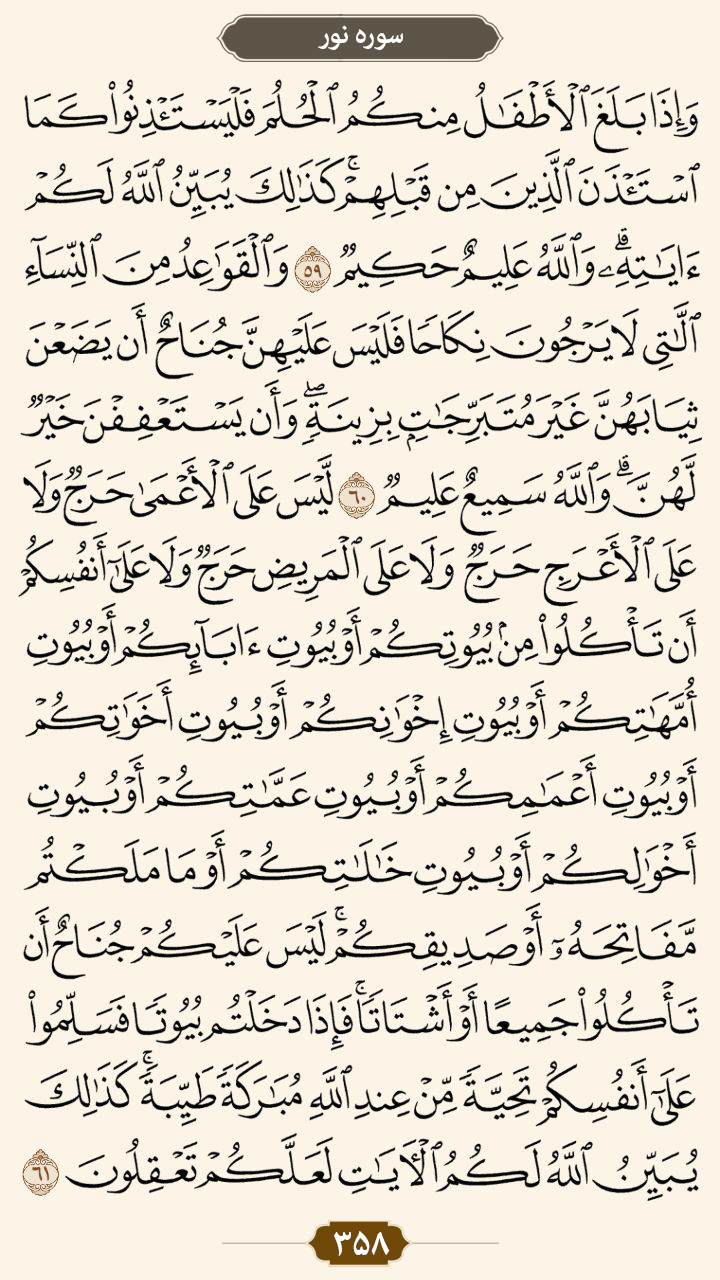 سوره نور
وَإِذَا بَلَغَ ٱلْأَطْفَٰلُ مِنكُمُ ٱلْحُلُمَ فَلْيَسْتَـْٔذِنُوا۟ كَمَا
ٱسْتَـْٔذَنَ ٱلَّذِينَ مِن قَبْلِهِمْ ۚ كَذَٰلِكَ يُبَيِّنُ ٱللَّهُ لَكُمْ
ءَايَٰتِهِۦ ۗ وَٱللَّهُ عَلِيمٌ حَكِيمٌ ٥٩ وَٱلْقَوَٰعِدُ مِنَ ٱلنِّسَآءِ
ٱلَّٰتِى لَا يَرْجُونَ نِكَاحًا فَلَيْسَ عَلَيْهِنَّ جُنَاحٌ أَن يَضَعْنَ
ثِيَابَهُنَّ غَيْرَ مُتَبَرِّجَٰتٍۭ بِزِينَةٍ ۖ وَأَن يَسْتَعْفِفْنَ خَيْرٌ
لَّهُنَّ ۗ وَٱللَّهُ سَمِيعٌ عَلِيمٌ ٦٠ لَّيْسَ عَلَى ٱلْأَعْمَىٰ حَرَجٌ وَلَا
عَلَى ٱلْأَعْرَجِ حَرَجٌ وَلَا عَلَى ٱلْمَرِيضِ حَرَجٌ وَلَا عَلَىٰٓ أَنفُسِكُمْ
أَن تَأْكُلُوا۟ مِنۢ بُيُوتِكُمْ أَوْ بُيُوتِ ءَابَآئِكُمْ أَوْ بُيُوتِ
أُمَّهَٰتِكُمْ أَوْ بُيُوتِ إِخْوَٰنِكُمْ أَوْ بُيُوتِ أَخَوَٰتِكُمْ
أَوْ بُيُوتِ أَعْمَٰمِكُمْ أَوْ بُيُوتِ عَمَّٰتِكُمْ أَوْ بُيُوتِ
أَخْوَٰلِكُمْ أَوْ بُيُوتِ خَٰلَٰتِكُمْ أَوْ مَا مَلَكْتُم
مَّفَاتِحَهُۥٓ أَوْ صَدِيقِكُمْ ۚ لَيْسَ عَلَيْكُمْ جُنَاحٌ أَن
تَأْكُلُوا۟ جَمِيعًا أَوْ أَشْتَاتًا ۚ فَإِذَا دَخَلْتُم بُيُوتًا فَسَلِّمُوا۟
عَلَىٰٓ أَنفُسِكُمْ تَحِيَّةً مِّنْ عِندِ ٱللَّهِ مُبَٰرَكَةً طَيِّبَةً ۚ كَذَٰلِكَ
يُبَيِّنُ ٱللَّهُ لَكُمُ ٱلْـَٔايَٰتِ لَعَلَّكُمْ تَعْقِلُونَ ٦١
۳۵۸